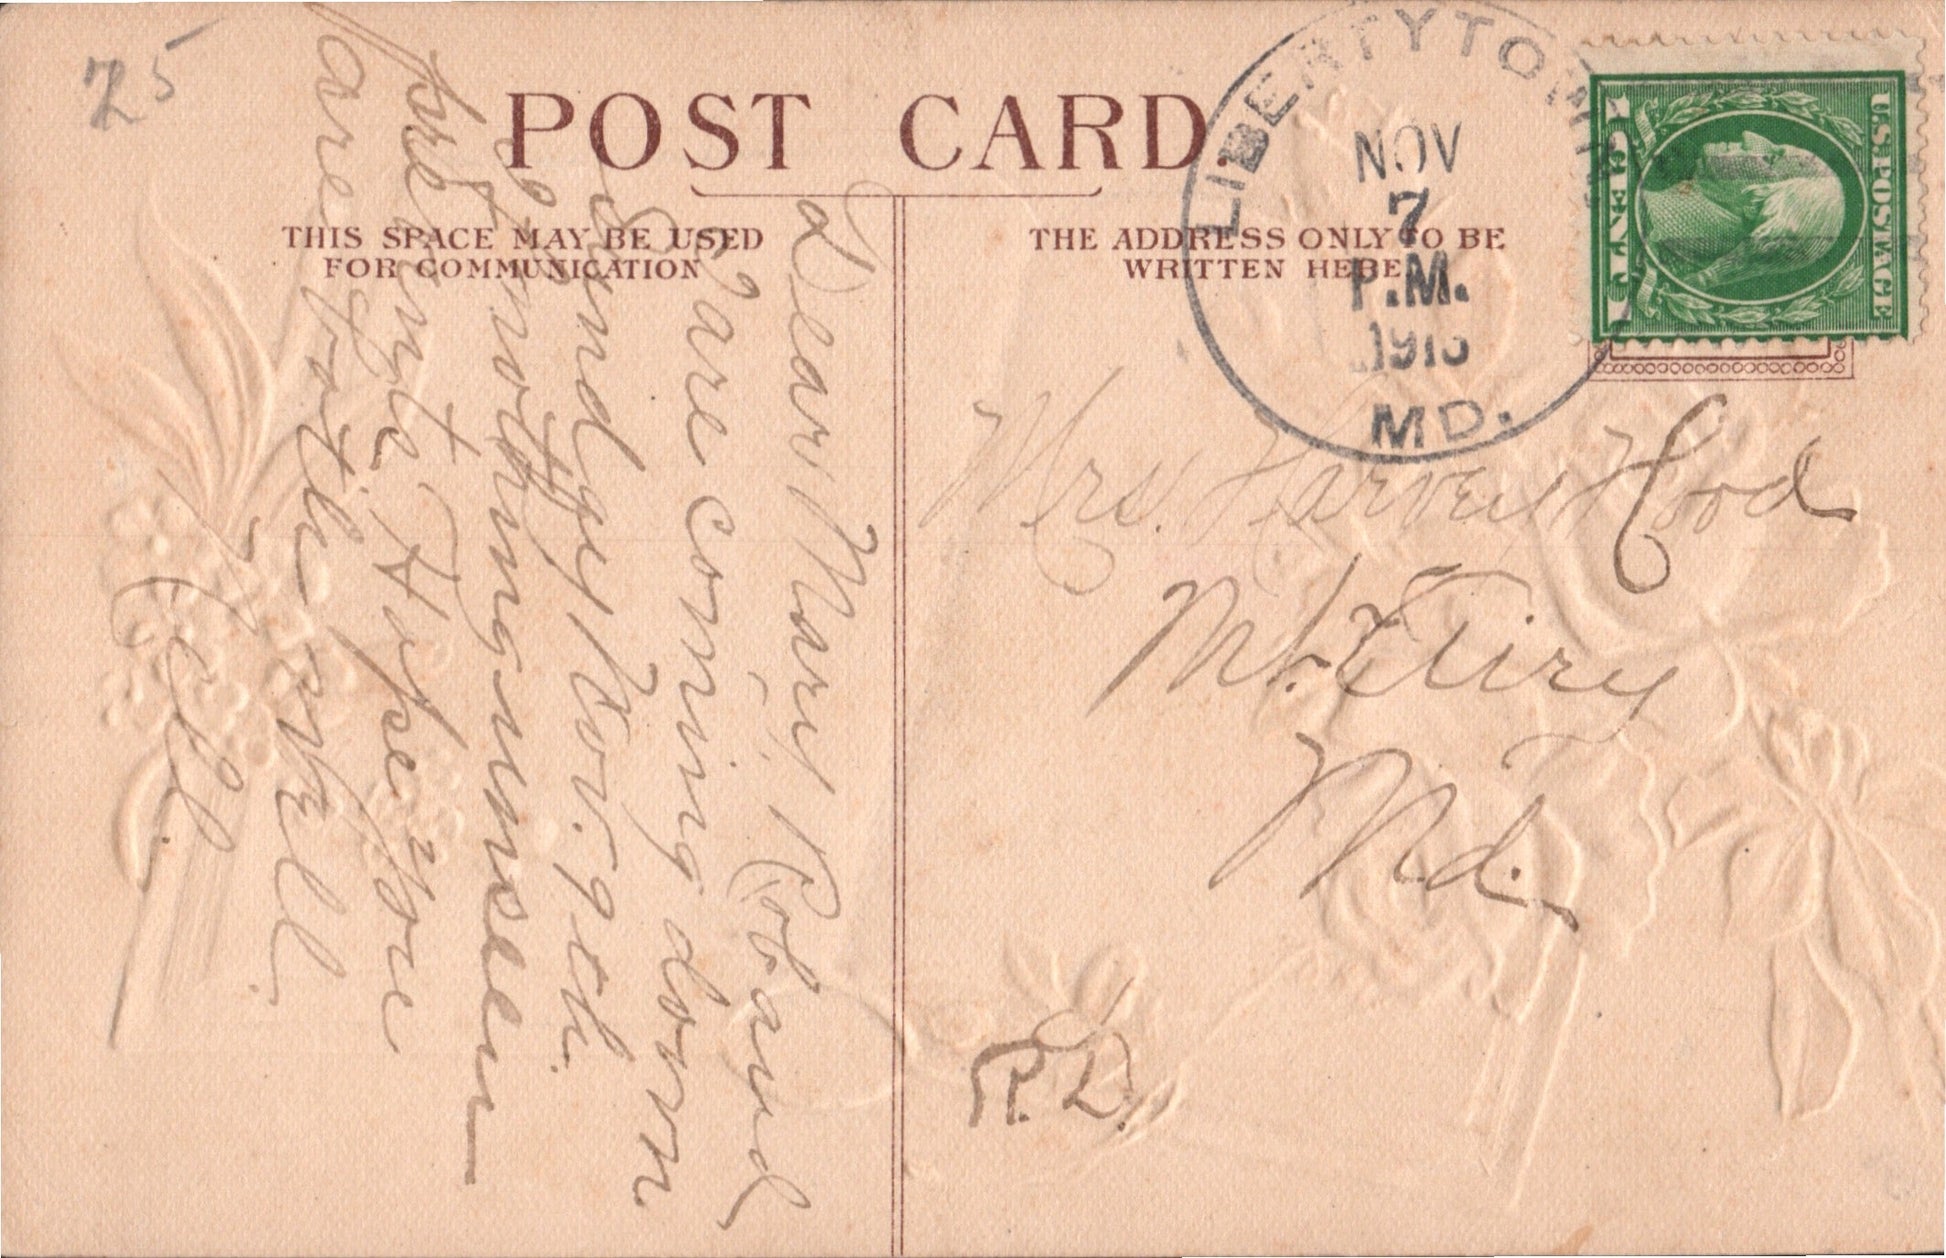 25
POST CARD.
THIS SPACE MAY BE USED
FOR COMMUNICATION
THE ADDRESS ONLY TO BE
WRITTEN HERE
LIBERTYTOWN
NOV
7
P.M.
MD.
U.S. POSTAGE
1 CENT 1
Dear Mary Rob and
I are coming down
Sunday Nov. 9th.
if nothing unseen
prevents. Hope you
are both well.
Mrs. Harvey Hood
Mt. Airy
Md.
R.D.